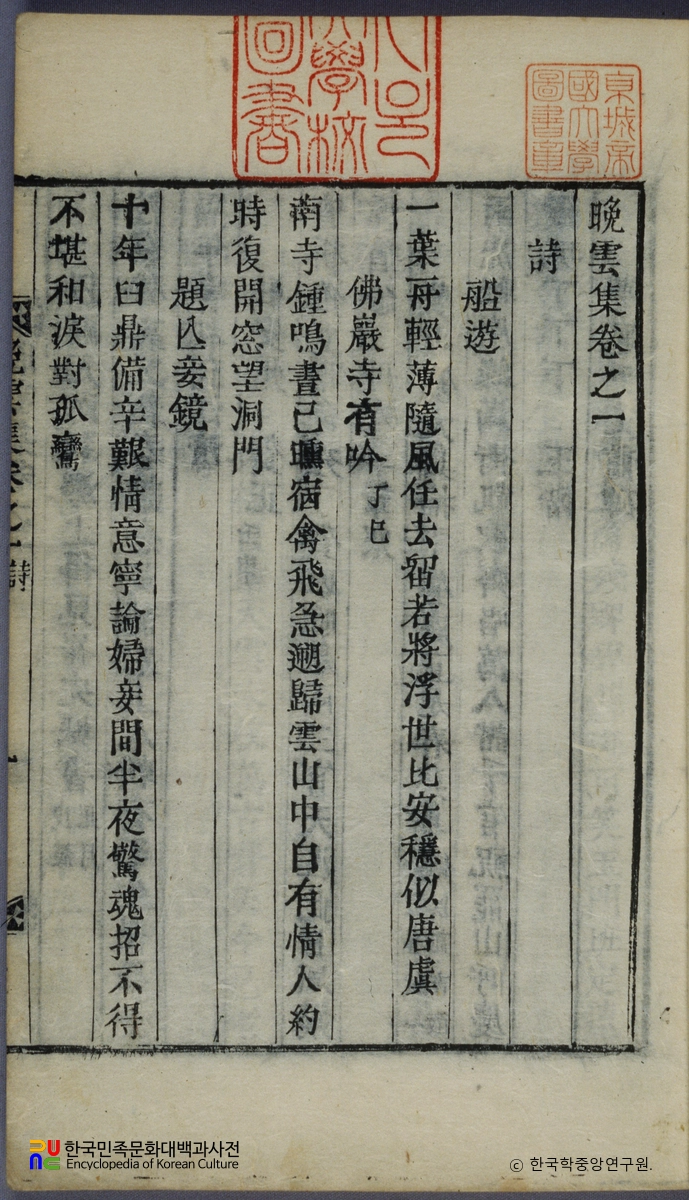 晚雲集卷之一
詩
船遊
一葉舟輕薄隨風任去留若將浮世比安穩似唐虞
佛巖寺有吟 丁巳
南寺鍾鳴晝已曛宿禽飛急趂歸雲山中自有情人約
時復開窓望洞門
題亡妾鏡
十年臼鼎備辛艱情意寧論婦妾間半夜驚魂招不得
不堪和淚對孤鸞
晚雲集卷之一 詩
京城帝
國大學
圖書章
한국민족문화대백과사전
Encyclopedia of Korean Culture
© 한국학중앙연구원.